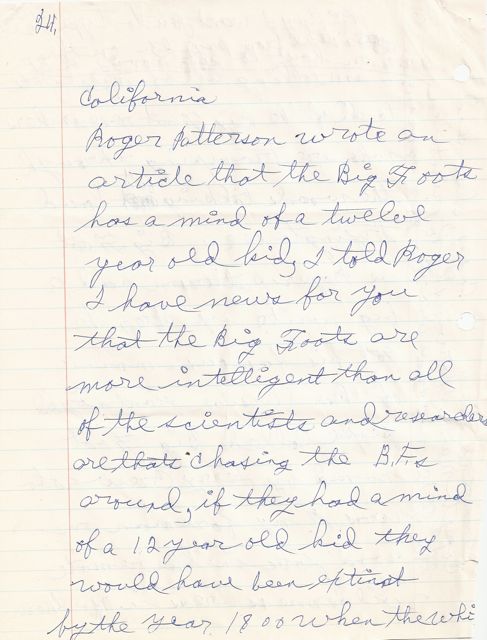 24.
California
Roger Patterson wrote an
article that the Big Foots
has a mind of a twelve
year old kid, I told Roger
I have news for you
that the Big Foots are
more intelligent than all
of the scientists and researchers
are thats chasing the B.F.s
around, if they had a mind
of a 12 year old kid they
would have been extinct
by the year 1800 when the whi